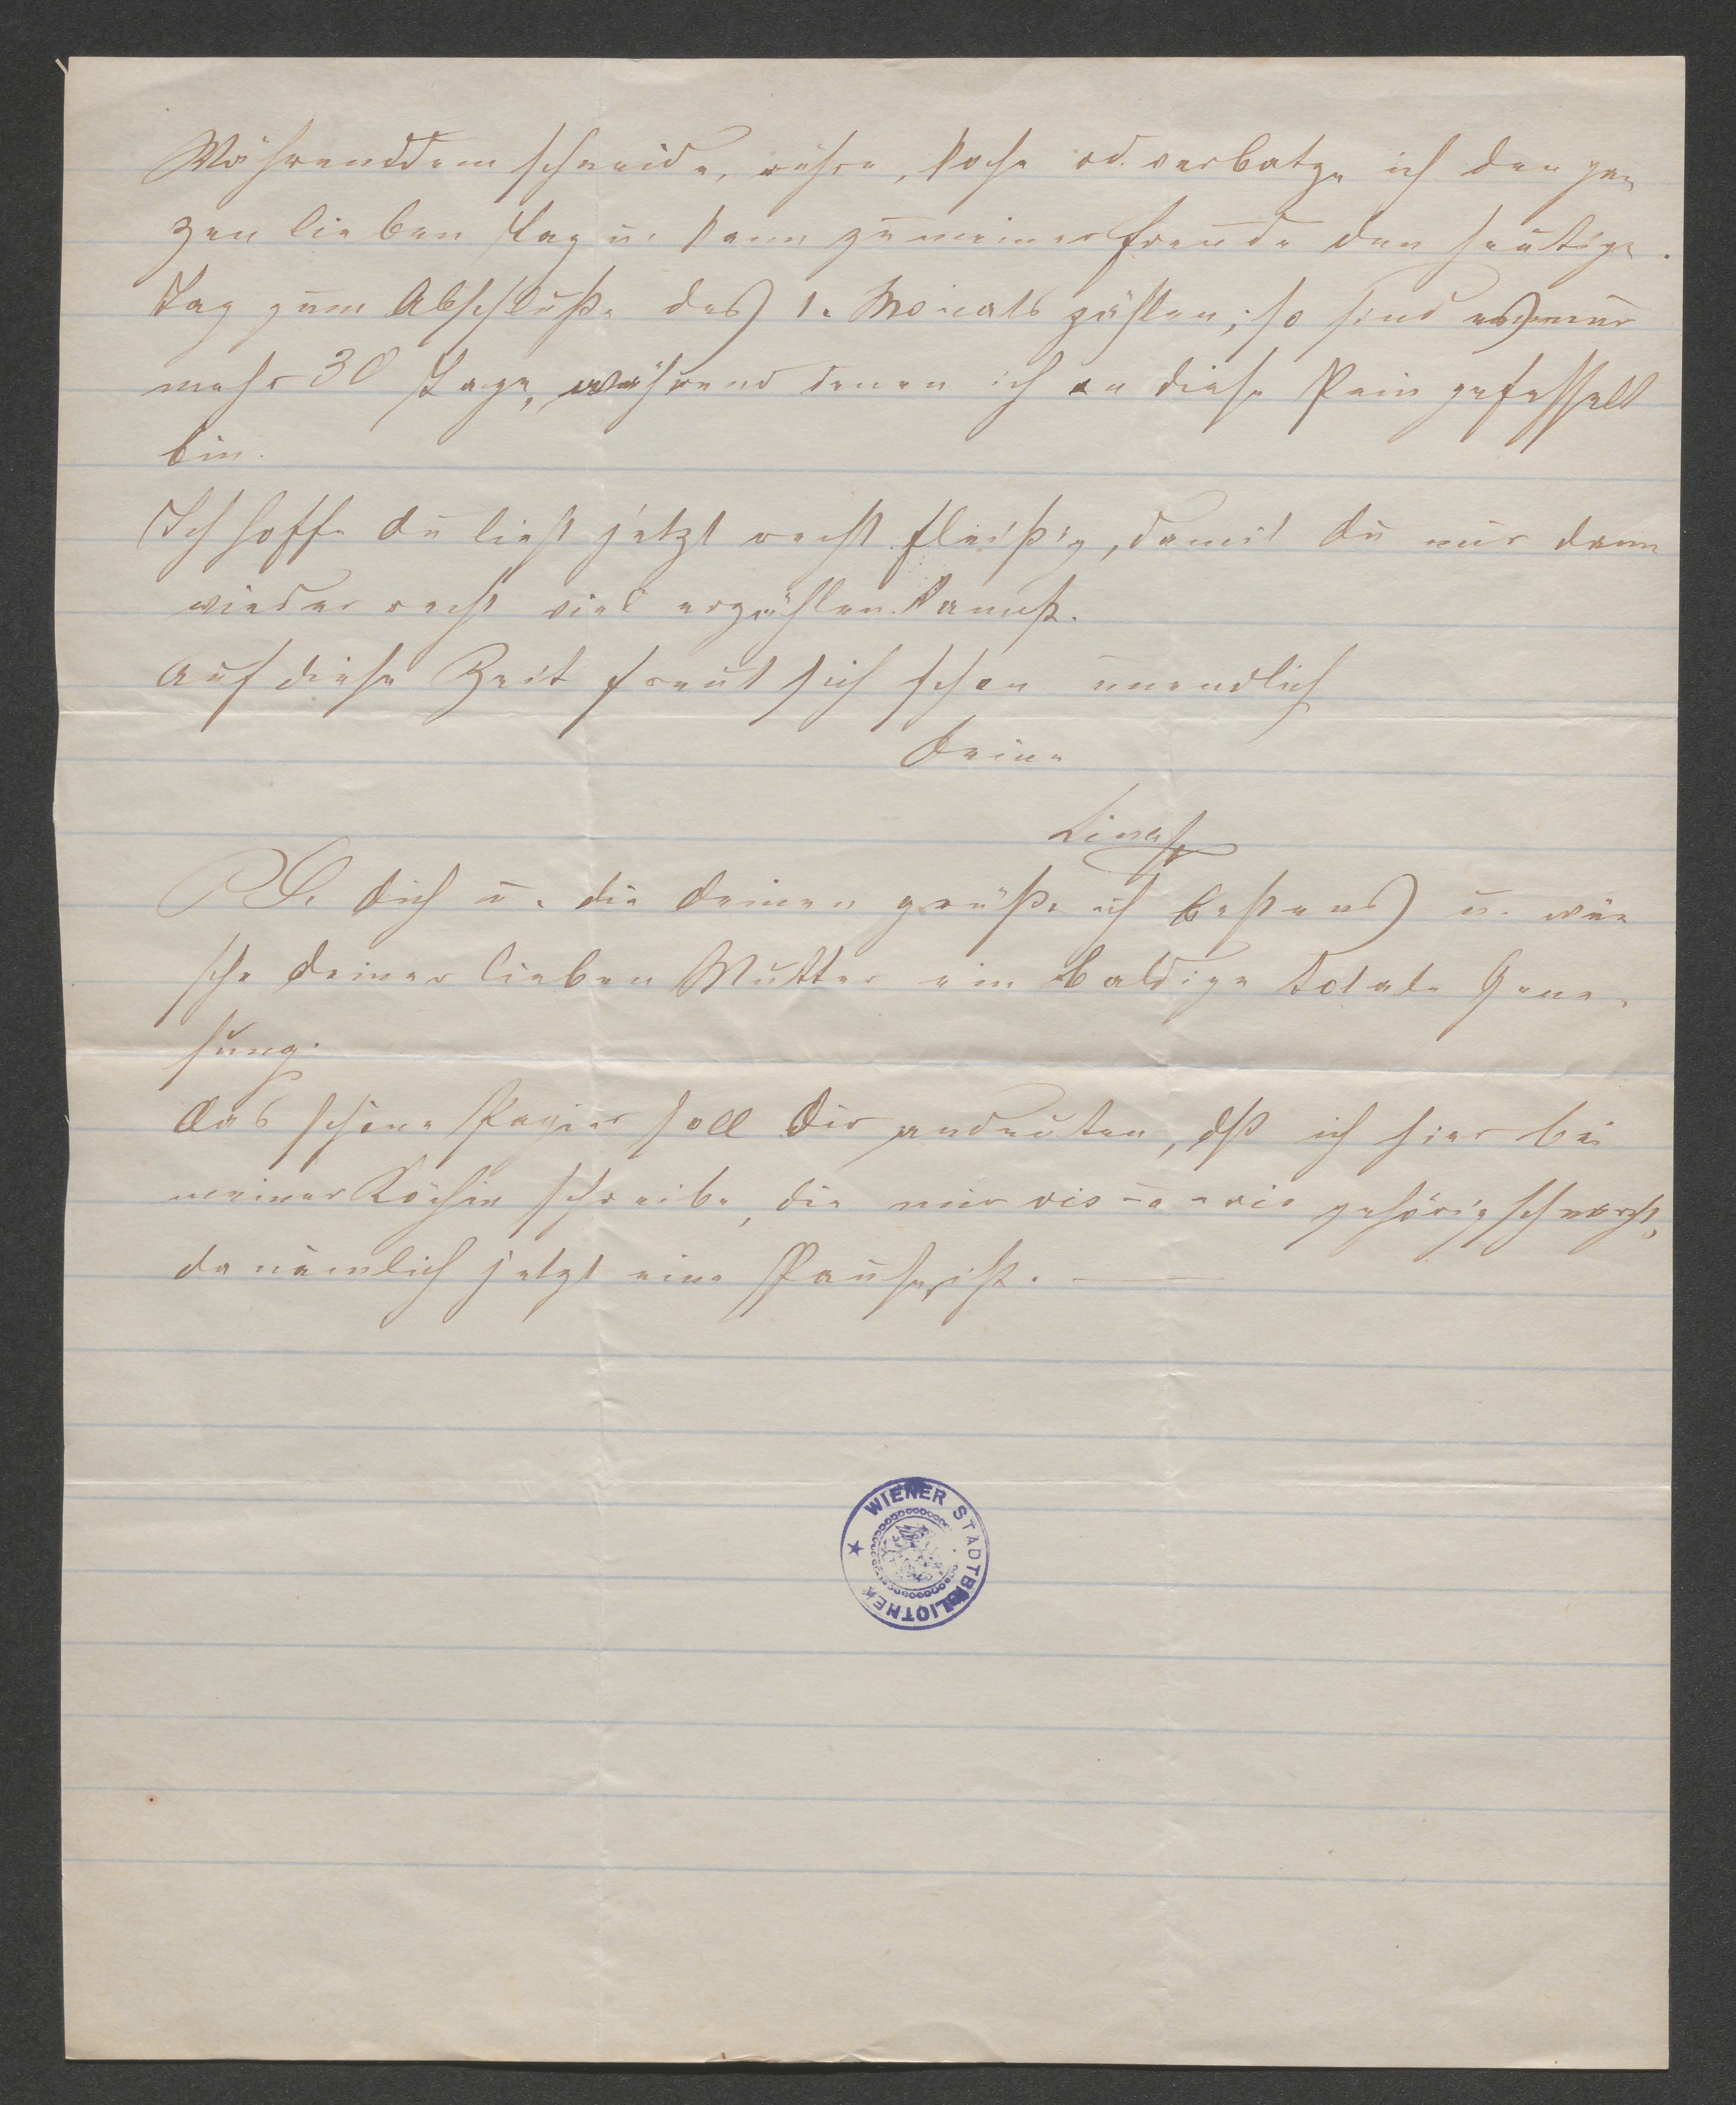 Währenddem schneide, rühre, koche od. verbatze ich den gan
zen lieben Tag u. kann zu meiner Freude den heutigen
Tag zum Abschluße des 1. Monats zählen; so sind es nur
mehr 30 Tage, während denen ich an diese Pein gefesselt
bin.
Ich hoffe du liest jetzt recht fleißig, damit du mir dann
wieder recht viel erzählen kannst.
Auf diese Zeit freut sich schon unendlich
Deine
Lina
PS. Dich u. die Deinen grüße ich bestens u. wün
sche Deiner lieben Mutter ein baldige totale Gene-
sung.
Das schöne Papier soll Dir andeuten, dß ich hier bei
meiner Köchin schreibe, die mir vis-a-vis gehörig schnarcht,
da nämlich jetzt eine Pause ist. — —
WIENER STADTBIBLIOTHEK